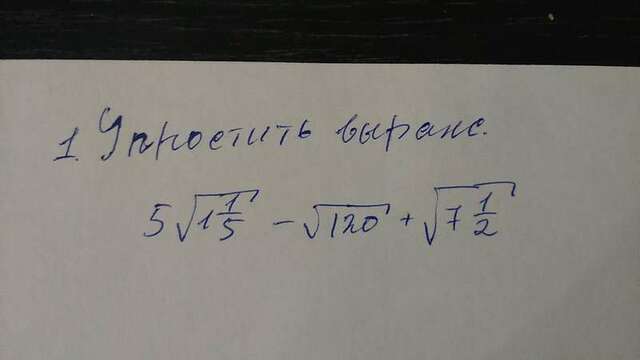 1. Упростить выраж.
5√1 1/5 - √120 + √7 1/2